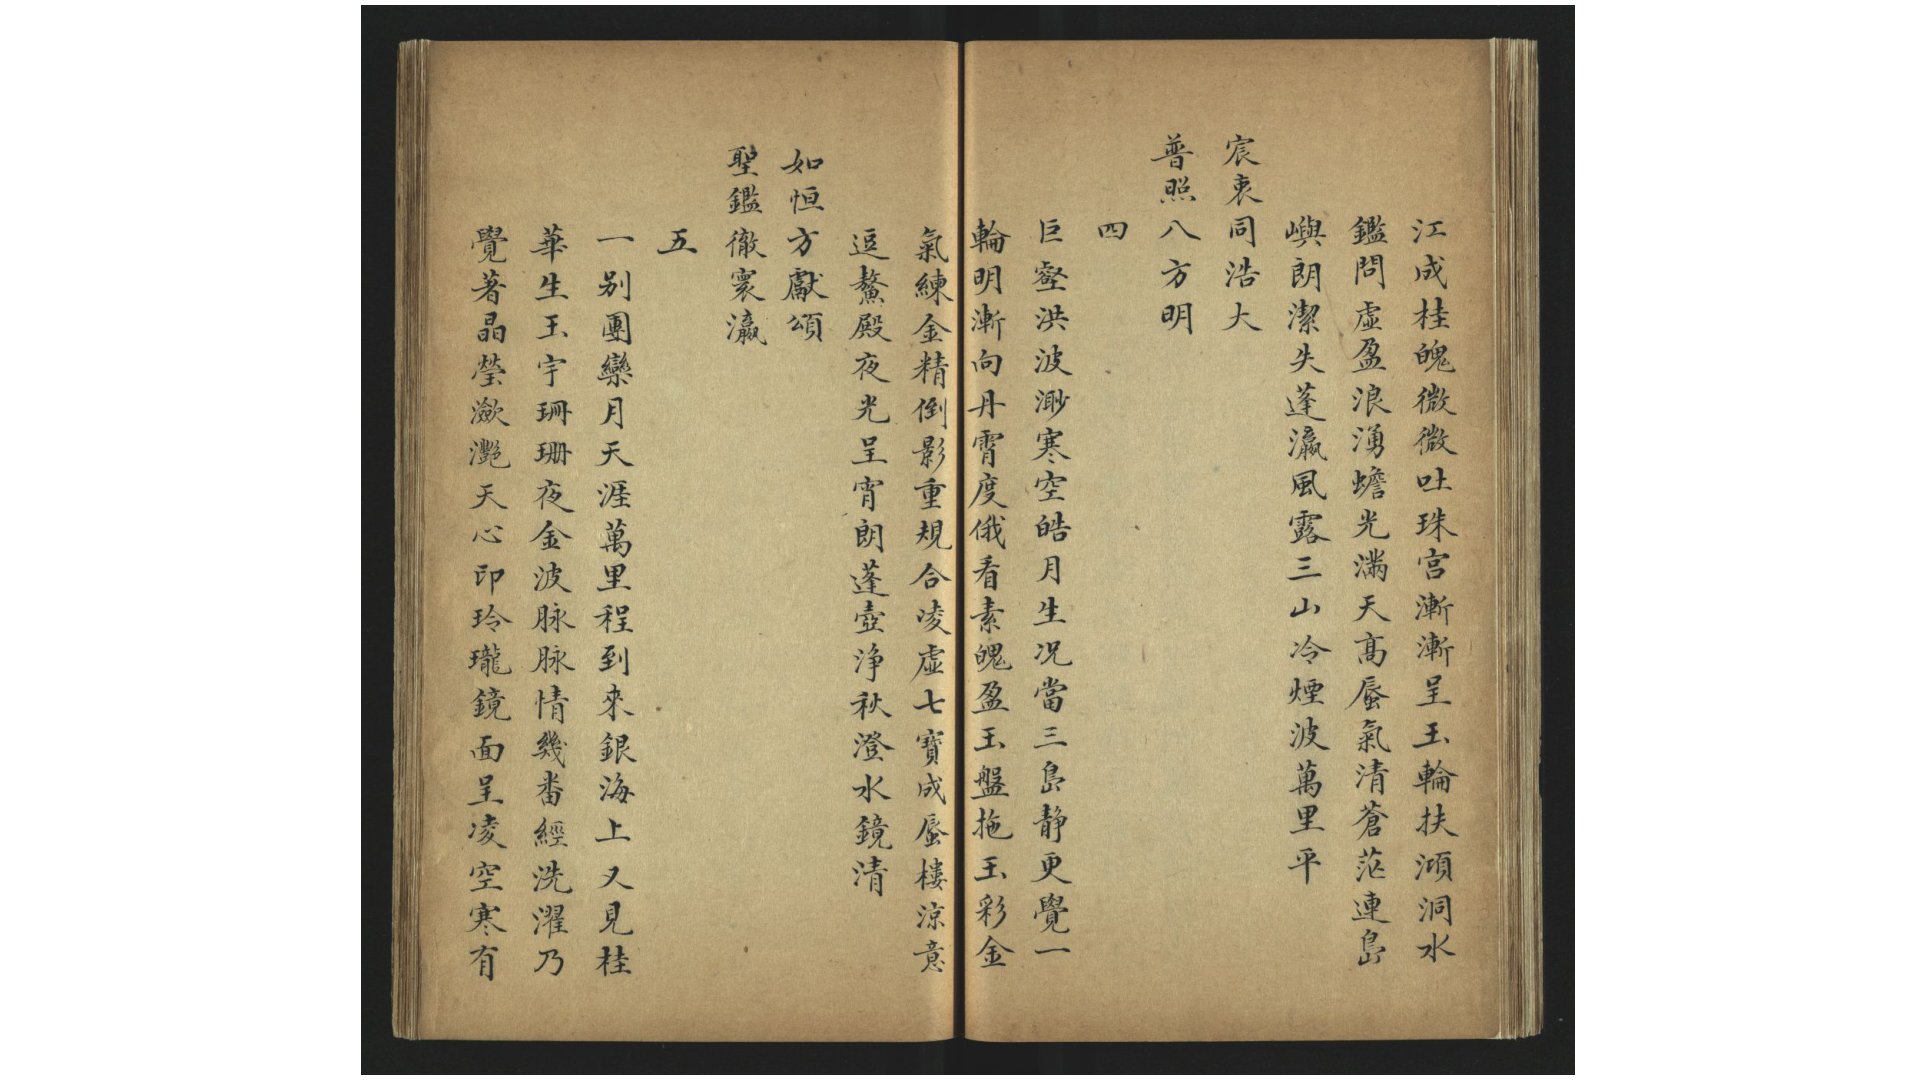 江成桂魄微微吐珠宮漸漸呈玉輪扶澒洞水
鑑問虛盈浪湧蟾光滿天高蜃氣清蒼茫連島
嶼朗潔失蓬瀛風露三山冷煙波萬里平
宸衷同浩大
普照八方明
四
巨壑洪波渺寒空皓月生况當三島静更覺一
輪明漸向丹霄度俄看素魄盈玉盤拖玉彩金
氣練金精倒影重規合凌虛七寶成蜃樓涼意
逗鰲殿夜光呈宵朗蓬壺浄秋澄水鏡清
如恒方獻頌
聖鑑徹寰瀛
五
一别團欒月天涯萬里程到來銀海上又見桂
華生玉宇珊珊夜金波脉脉情幾番經洗濯乃
覺著晶瑩瀲灩天心印玲瓏鏡面呈凌空寒有